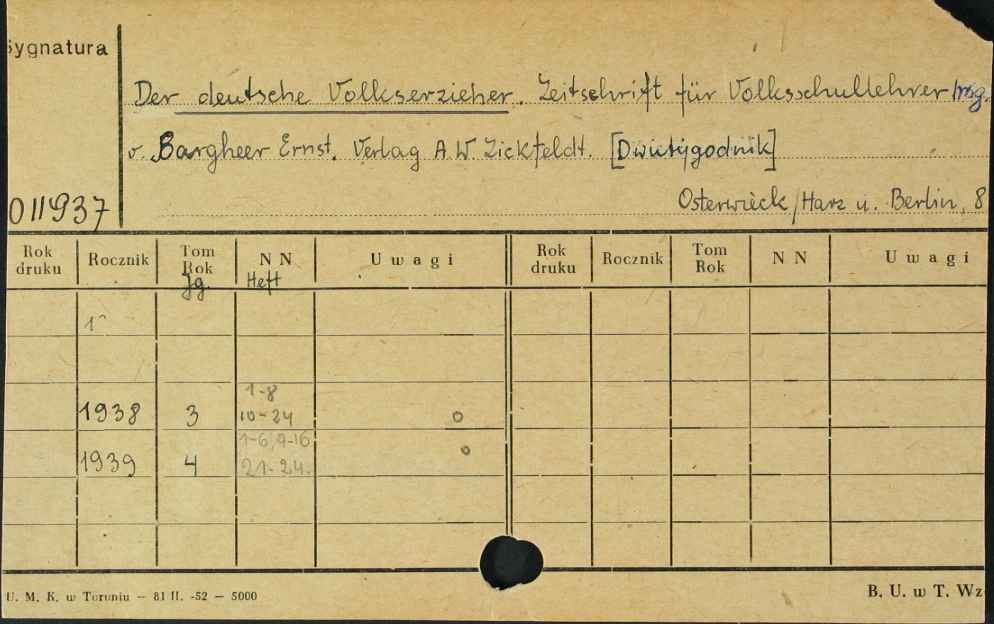 Sygnatura
Der deutsche Volkserzieher. Zeitschrift für Volksschullehrer hrsg.
v. Bargheer Ernst. Verlag A.W. Zickfeldt. [Dwutygodnik]
011937
Osterwieck/Harz u. Berlin, 8
Rok druku Rocznik Tom Rok Jg. NN Heft Uwagi Rok druku Rocznik Tom Rok NN Uwagi
1-8
1938 3 10-24 o
1-6, 9-16
1939 4 21-24. o
U. M. K. w Toruniu — 81 II. -52 — 5000
B. U. w T. Wz